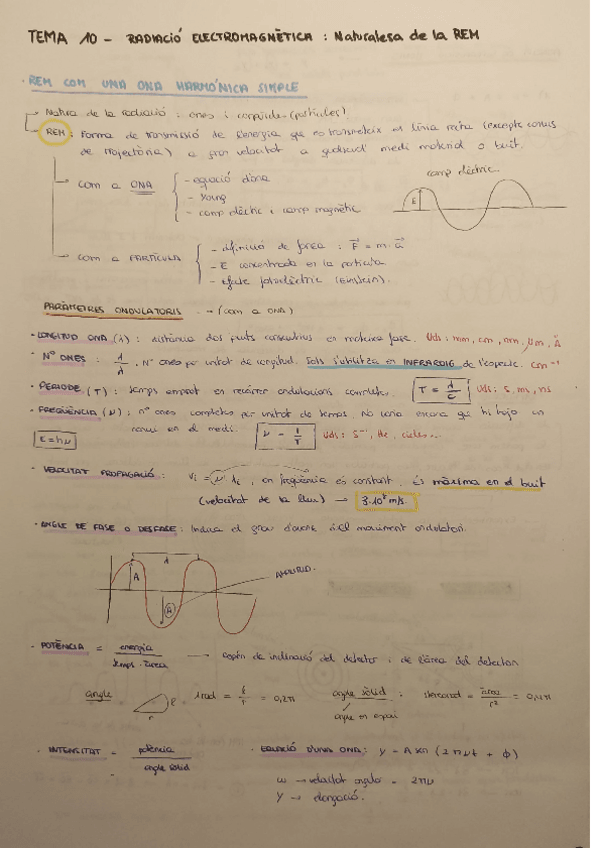 TEMA 10 - RADIACIÓ ELECTROMAGNÈTICA : Naturalesa de la REM
· REM COM UNA ONA HARMÒNICA SIMPLE
Natura de la radiació : ones i corpúscles (partícules)
REM : Forma de transmissió de l'energia que es transmeteix en línia recta (excepte canvis
de trajectòria) a gran velocitat a qualsevol medi material o buit.
camp elèctric
com a ONA
- equació d'ona
- Young
- camp elèctric i camp magnètic
E
com a PARTÍCULA
- definició de força : F = m·a
- E concentrada en la partícula
- efecte fotoelèctric (Einstein).
PARÀMETRES ONDULATORIS → (com a ONA)
· LONGITUD ONA (λ) : distància dos punts consecutius en mateixa fase. Uds: mm, cm, nm, μm, Å
· Nº ONES : 1/λ , Nº ones per unitat de longitud. Sols s'utilitza en INFRAROIG de l'espectre. cm⁻¹
· PERÍODE (T) : temps emprat en recórrer ondulacions completes. T = λ/c Uds: s, ms, ns
· FREQÜÈNCIA (ν) : nº ones completes per unitat de temps. No canvia encara que hi haja un
canvi en el medi. ν = 1/T Uds: s⁻¹, Hz, cicles...
E = hν
· VELOCITAT PROPAGACIÓ : vi = ν · λi , on freqüència és constant. És màxima en el buit
(velocitat de la llum) → 3·10⁸ m/s.
· ANGLE DE FASE O DESFASE : Indica el grau d'avanç del moviment ondulatori.
λ
A
A
AMPLITUD.
· POTÈNCIA = energia / temps · àrea → depén de inclinació del detector i de l'àrea del detector
angle l r 1 rad = l/r = 0,2π angle sòlid : stereorad = àrea/r² = 0,4π
angle en espai
· INTENSITAT = potència / angle sòlid · EQUACIÓ D'UNA ONA : y = A sin (2πνt + ϕ)
ω → velocitat angular = 2πν
Y → elongació.